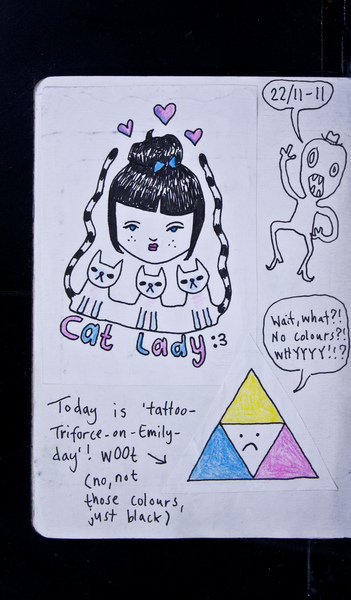 22/11-11
Cat Lady :3
Wait, what?!
No colours?!
WHYYYY!!?
Today is 'tattoo-
Triforce-on-Emily-
day'! W00t
(no, not
those colours,
just black)